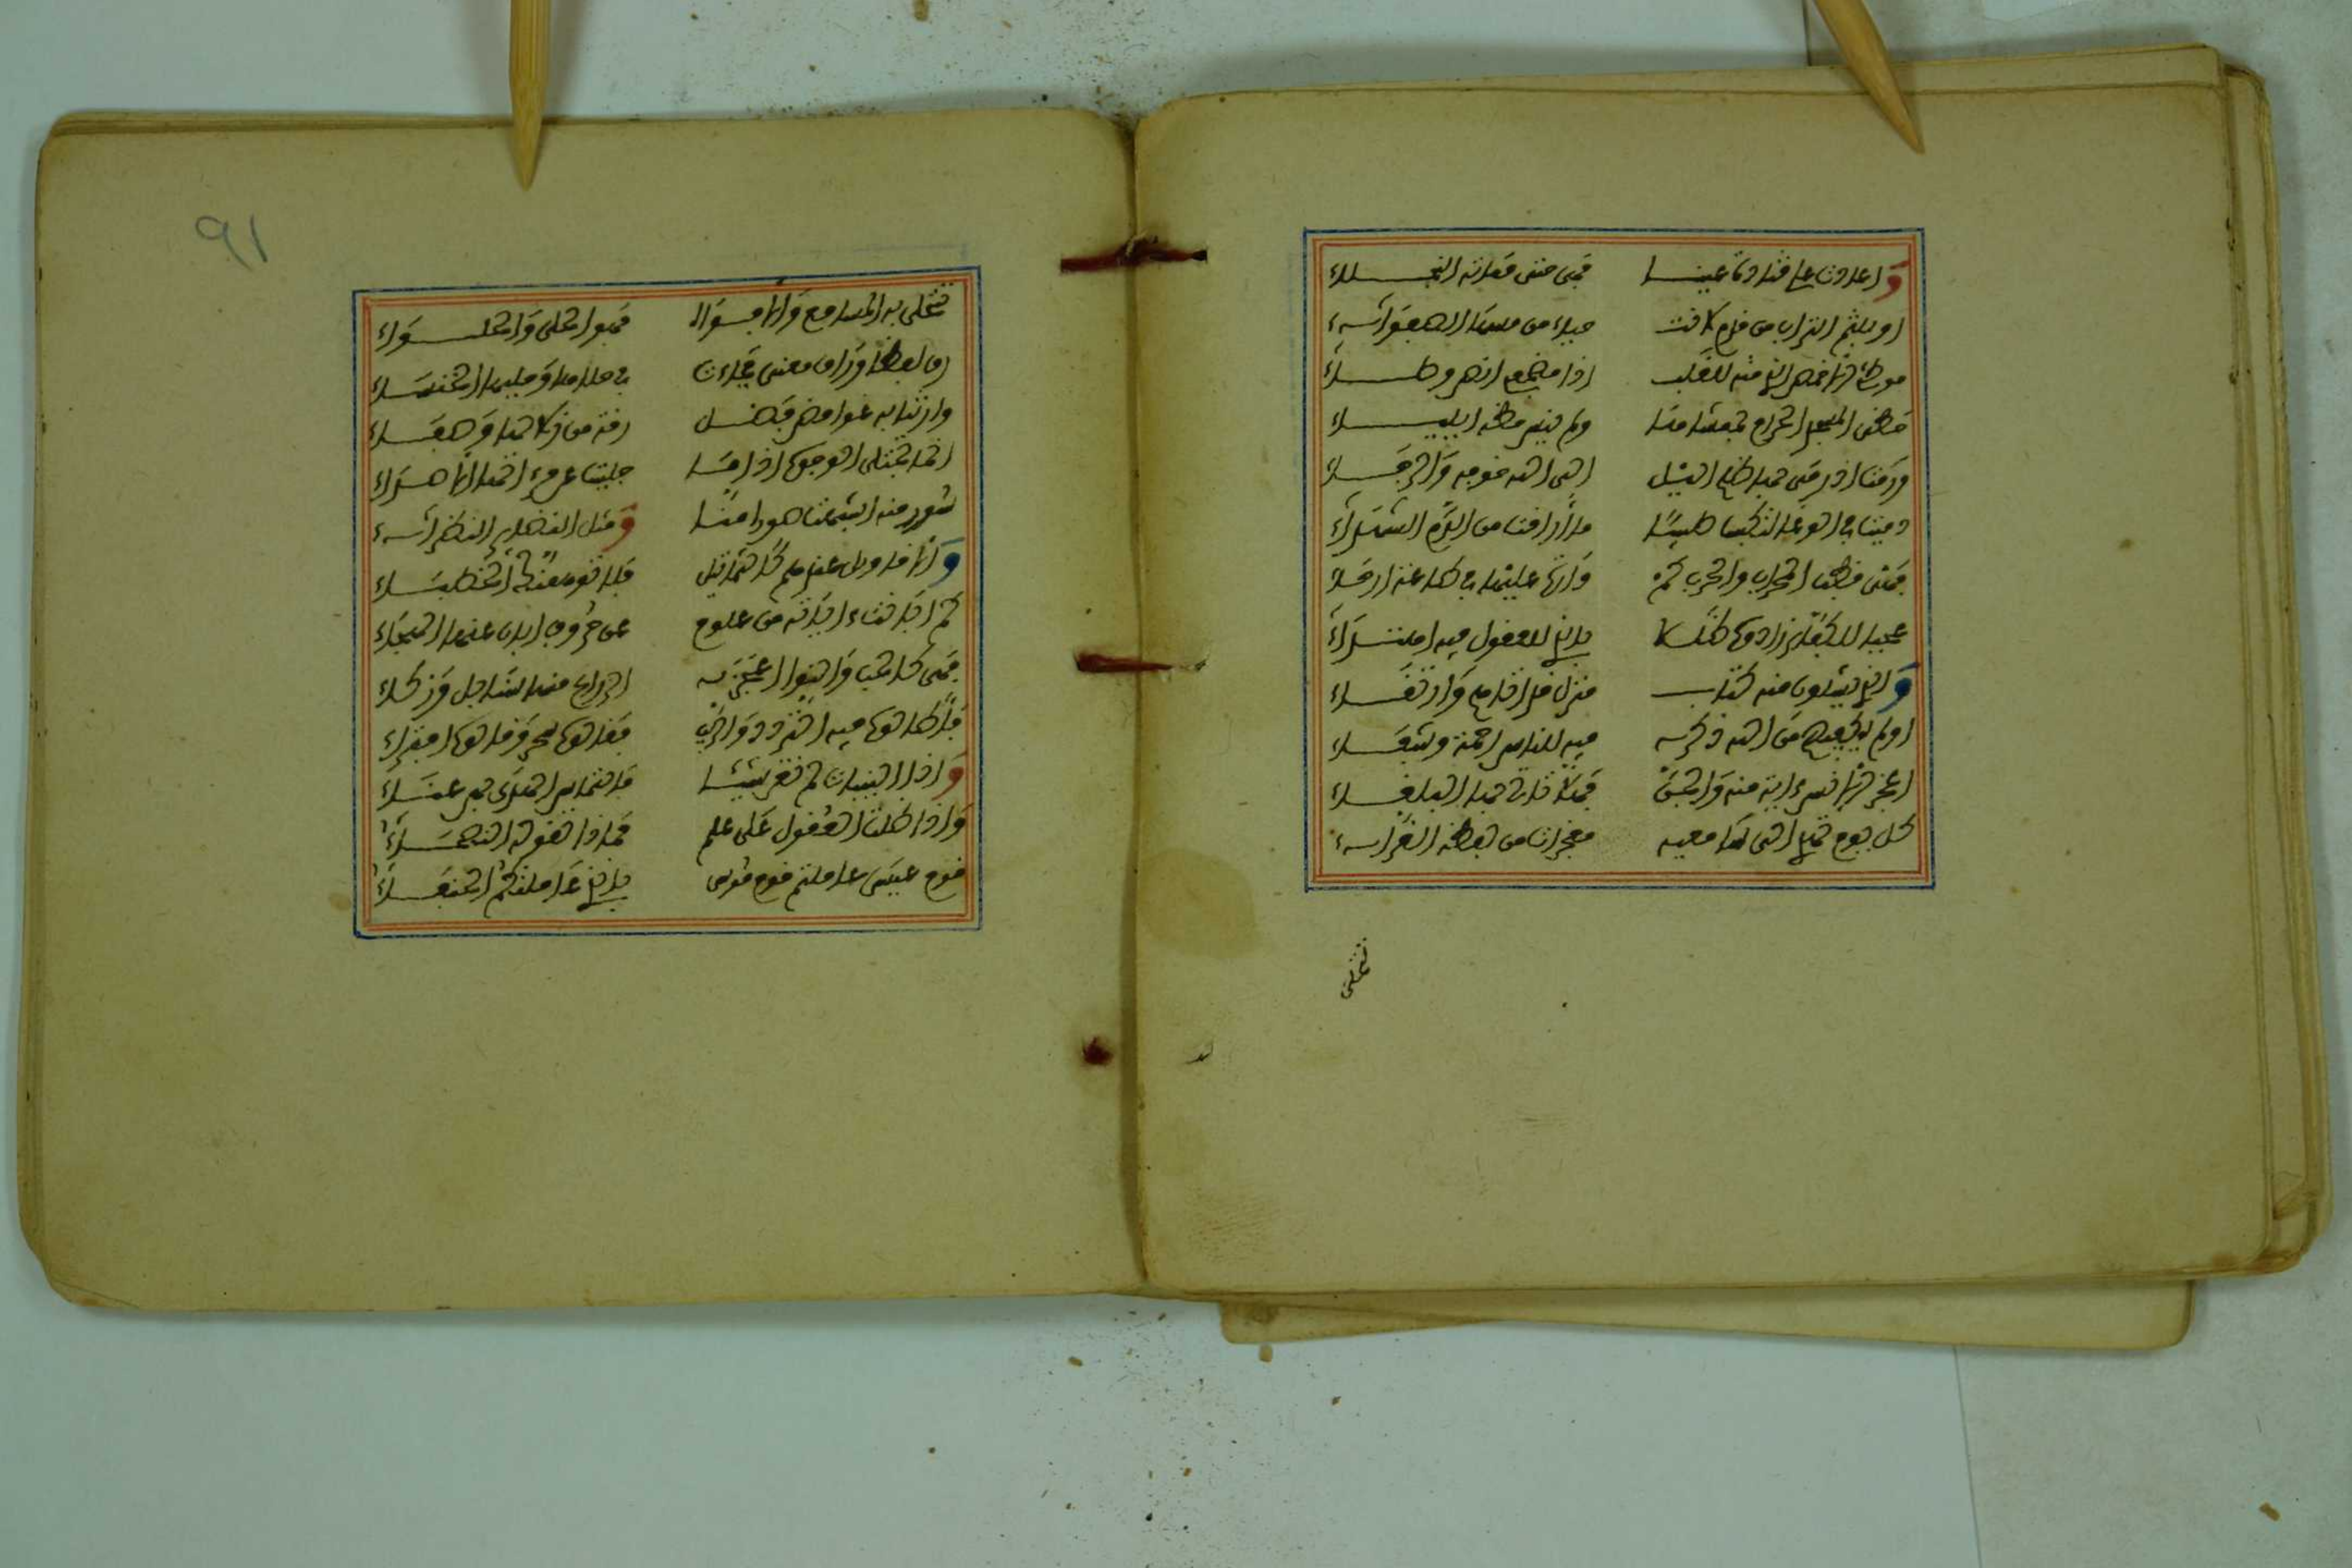 وأعادت على قتادة عينا فهي حتى مماته النجلاء
أو بلثم التراب من قدم لانت حياء من مسها الصفواء
موطئ الأخمص الذي منه للقلب إذا مضجعي أقض وطاء
حظي المسجد الحرام بممشاها ولم ينس حظه إيلياء
ورمت إذ رمى بها ظلم الليل إلى الله خوفه والرجاء
دميت في الوغى لتكسب طيبا ما أراقت من الدم الشهداء
فهي قطب المحراب والحرب كم دارت عليها في طاعة أرحاء
عجبا للكفار زادوا ضلالا بالذي للعقول فيه اهتداء
والذي يسألون منه كتاب منزل قد أتاهم وارتقاء
أولم يكفهم من الله ذكر فيه للناس رحمة وشفاء
أعجز الإنس آية منه والجن فهلا تأتي بها البلغاء
كل يوم تهدي إلى سامعيه معجزات من لفظه القراء
تتحلى
٩١
تتحلى به المسامع والأفواه فهو الحلي والحلواء
رق لفظا وراق معنى فجاءت في حلاها وحليها الخنساء
وأرتنا به غوامض فضل رقة من زلالها وصفاء
إنما تجتلى الوجوه إذا ما جليت عن مرآتها الأصداء
سور منه أشبهت صورا منا ومثل النظائر النظراء
والأقاويل عندهم كالتماثيل فلا توهمنك الخطباء
كم أبانت آياته من علوم عن حروف أبان عنها الهجاء
فهي كالحب والنوى أعجب الزراع منها سنابل وزكاء
فأطالوا فيه التردد والريب فقالوا سحر وقالوا افتراء
وإذا البينات لم تغن شيئا فالتماس الهدى بهن عناء
وإذا ضلت العقول على علم فماذا تقوله النصحاء
قوم عيسى عاملتم قوم موسى بالذي عاملتكم الحنفاء